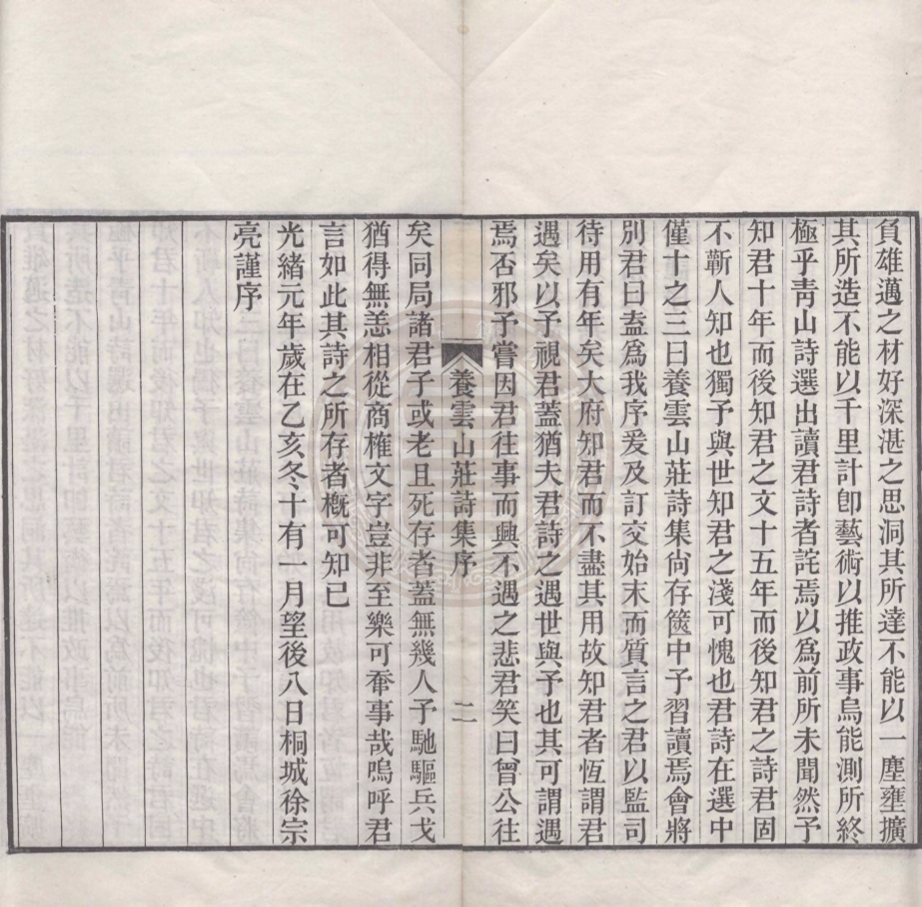 負雄邁之材好深湛之思洞其所達不能以一塵壅擴
其所造不能以千里計卽藝術以推政事烏能測所終
極乎靑山詩選出讀君詩者詫焉以爲前所未聞然予
知君十年而後知君之文十五年而後知君之詩君固
不蘄人知也獨予與世知君之淺可愧也君詩在選中
僅十之三曰養雲山莊詩集尙存篋中予習讀焉會將
別君曰盍爲我序爰及訂交始末而質言之君以監司
待用有年矣大府知君而不盡其用故知君者恆謂君
遇矣以予視君蓋猶夫君詩之遇世與予也其可謂遇
焉否邪予嘗因君往事而興不遇之悲君笑曰曾公往
養雲山莊詩集序 二
矣同局諸君子或老且死存者蓋無幾人予馳驅兵戈
猶得無恙相從商榷文字豈非至樂可奈事哉嗚呼君
言如此其詩之所存者槪可知已
光緖元年歲在乙亥冬十有一月望後八日桐城徐宗
亮謹序